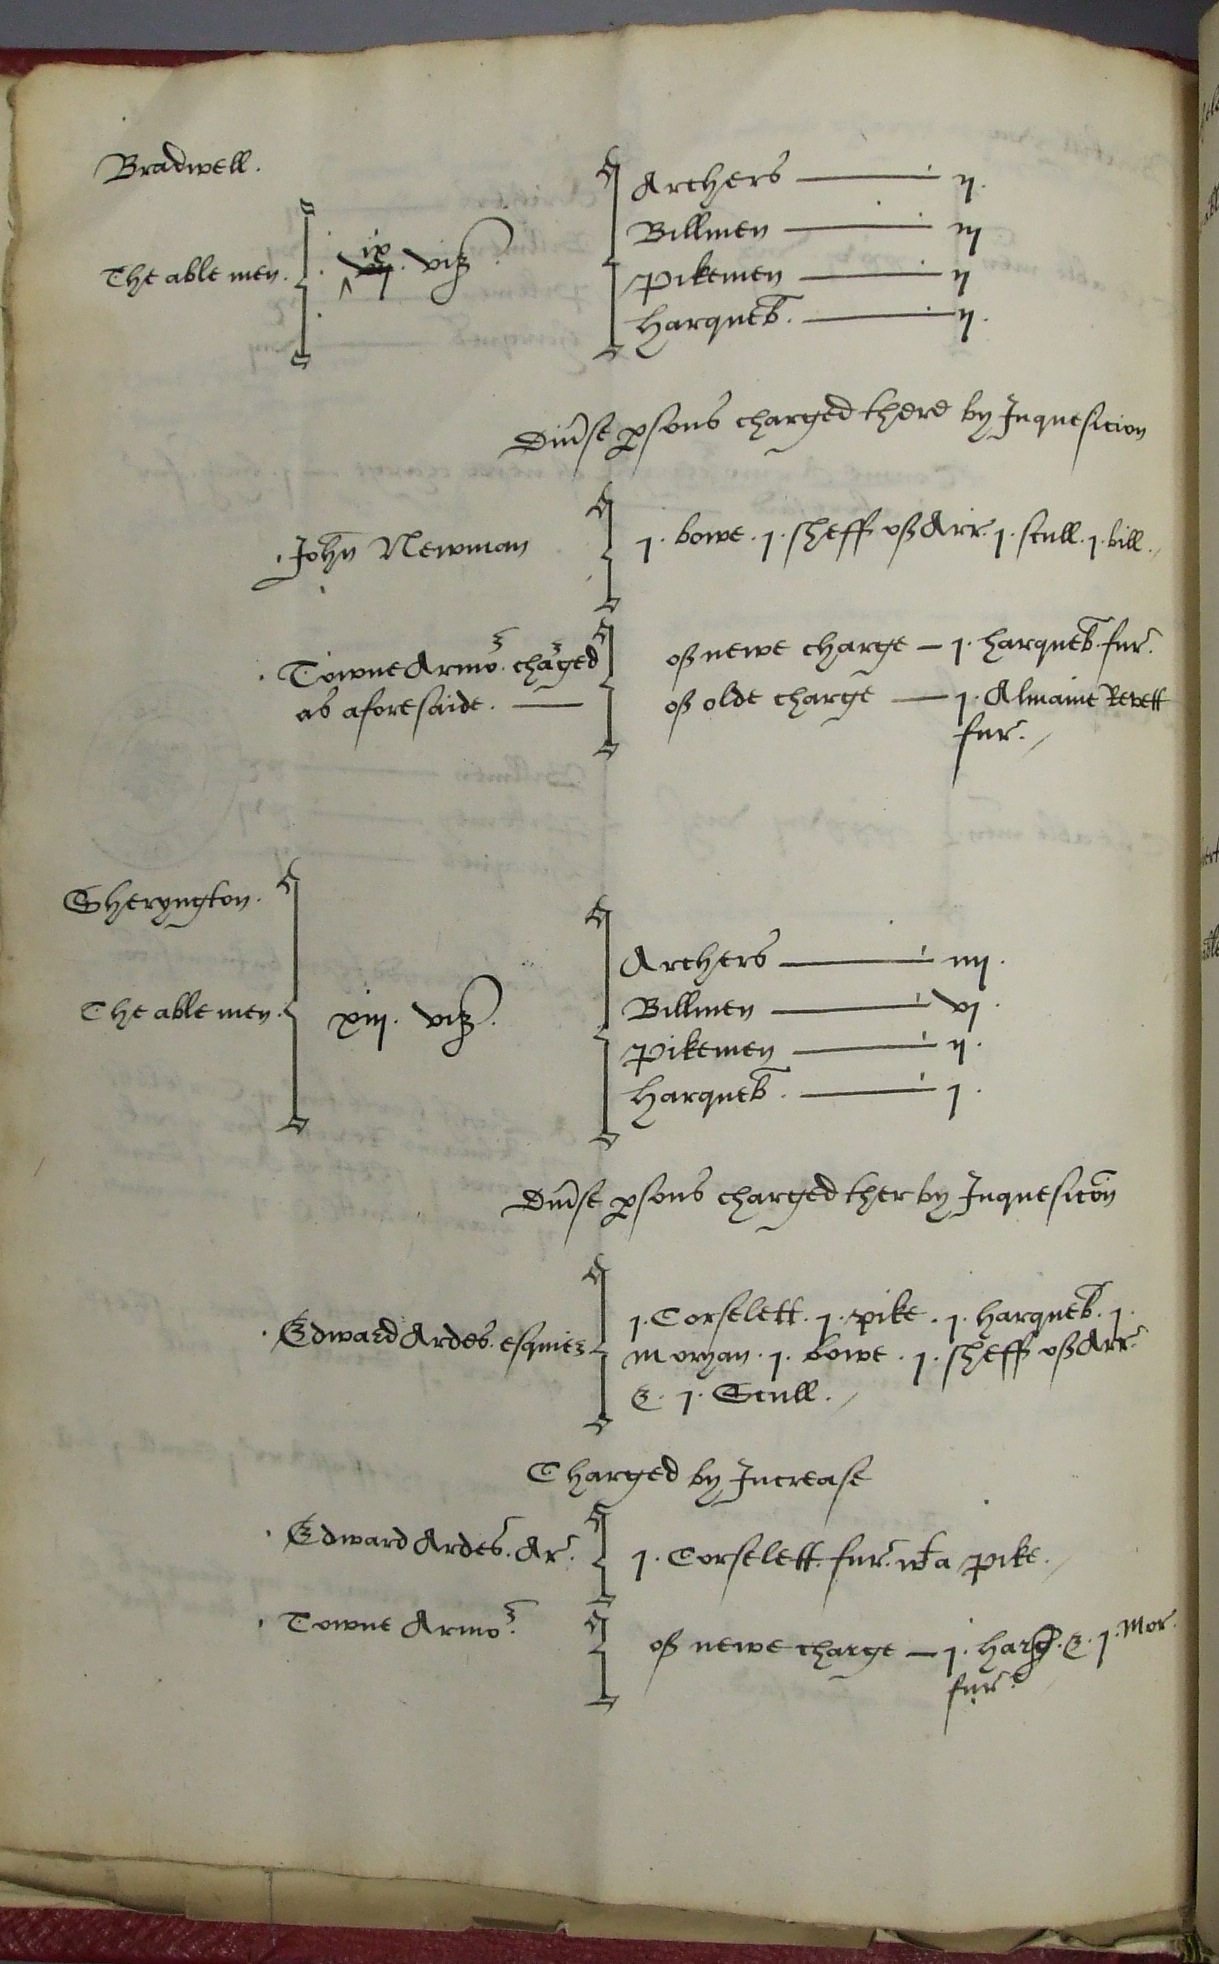 Bradwell.
The able men. ix vij. viz.
Archers — ij.
Billmen — iij
Pikemen — ij
Harqueb. — ij.
Diuse psons charged there by Inquesicion
John Newman
j. bowe. j. sheff of Arr. j. scull. j. bill.
Towne Armor. charged
as aforesaide. —
of newe charge — j. harqueb. fur.
of olde charge — j. Almaine Revett
fur.
Sheryngton.
The able men. xiij. viz.
Archers — iiij.
Billmen — vj.
Pikemen — ij.
Harqueb. — j.
Diuse psons charged ther by Inquesicon
Edward Ardes. esquier
j. Corselett. j. pike. j. harqueb. j.
moryan. j. bowe. j. sheff of Arr.
& j. Scull.
Charged by Increase
Edward Ardes. Ar.
j. Corselett. fur. wt a pike.
Towne Armor.
of newe charge — j. harq. & j. Mor.
fur.